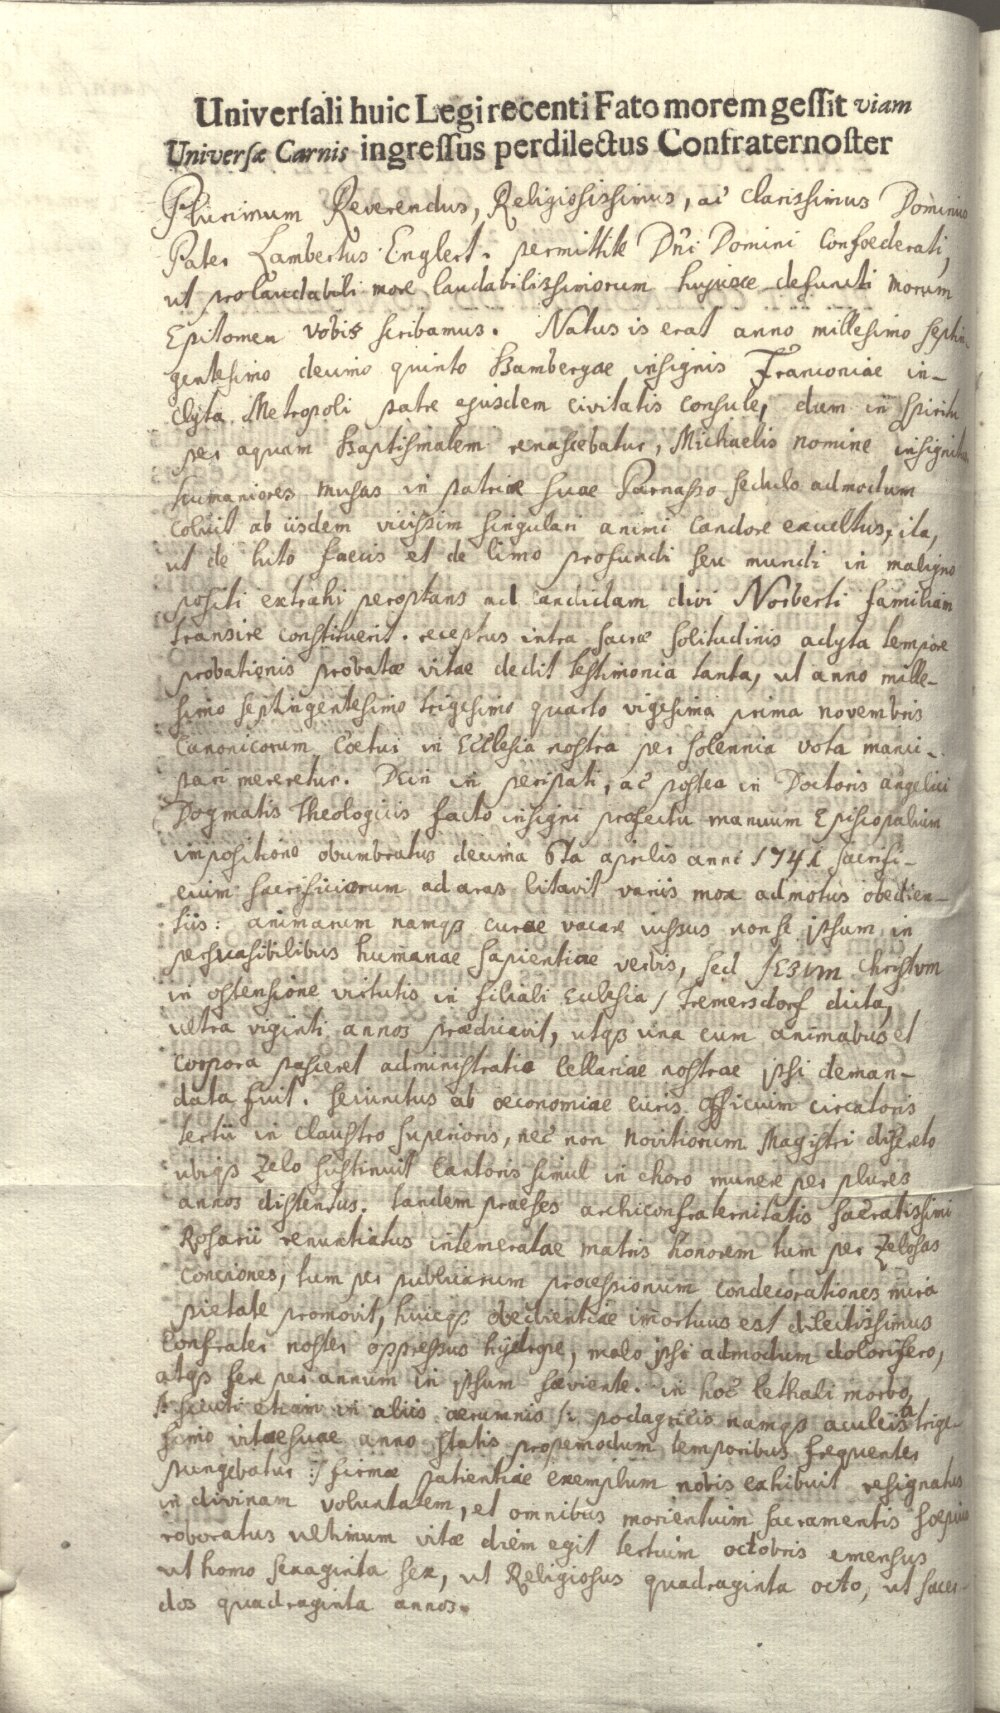 Universali huic Legi recenti Fato morem gessit viam
Universæ Carnis ingressus perdilectus Confrater noster
Plurimum Reverendus, Religiosissimus, ac clarissimus Dominus
Pater Lambertus Englert. permittite Dñi Domini Confoederati,
ut pro laudabili more laudabilissimorum hujusce defuncti morum
Epitomen vobis scribamus. Natus is erat anno millesimo septin-
gentesimo decimo quinto Bambergae insignis Franconiae in-
clyta Metropoli patre ejusdem civitatis consule, dum in spiritu
per aquam Baptismalem renascebatur, Michaelis nomine insignitus
humaniores musas in patriae suae Parnasso sedulo admodum
coluit ab iisdem vicissim singulari animi candore excultus, ita,
ut de luto faecis et de limo profundi seu mundi in maligno
positi extrahi peroptans ad candidam divi Norberti familiam
transire constituerit. receptus intra sacræ solitudinis adyta tempore
probationis probatæ vitae dedit testimonia tanta, ut anno mille-
simo septingentesimo trigesimo quarto vigesima prima novembris
Canonicorum Coetui in Ecclesia nostra per solennia vota manci-
pari mereretur. Dein in peripati, ac postea in Doctoris angelici
Dogmatis Theologicis facto insigni profectu manuum Episcopalium
impositione obumbratus decima 6ta aprilis anni 1741 sacrifi-
cium sacrificiorum ad aras litavit variis mox admotus obedien-
tiis: animarum namqs curae vacare iussus non se ipsum in
persuasibilibus humanae sapientiae verbis, sed JESUM Christum
in ostensione virtutis in filiali Eclesia / Tremersdorf dicta,
ultra viginti annos prædicavit, utqs una cum animabus et
corpora pasceret administratio Cellariae nostrae ipsi deman-
data fuit. seiunctus ab oeconomiae curis officium circatoris
tertii in claustro superioris, nec non Novitiorum Magistri discreto
ubiqs zelo sustinuit Cantoris simul in choro munere per plures
annos distentus. tandem praeses archiconfraternitatis sacratissimi
Rosarii renuntiatus intemeratae matris honorem tum per zelosas
conciones, tum per publicarum processionum condecorationes mira
pietate promovit, huicqs obedientiae im̃ortuus est dilectissimus
Confrater noster oppressus hydrope, malo ipsi admodum dolorifero,
atqs fere per annum in ipsum sæviente. in hoc lethali morbo,
sicuti etiam in aliis aerumnis /: podagricis namqs aculeis a trige-
simo vitae suae anno statis propemodum temporibus frequenter
pungebatur :/ firmæ patientiae exemplum nobis exhibuit resignatus
in divinam voluntatem, et omnibus morientium sacramentis sæpius
roboratus ultimum vitæ diem egit tertium octobris emensus
ut homo sexaginta sex, ut Religiosus quadraginta octo, ut sacer-
dos quadraginta annos.